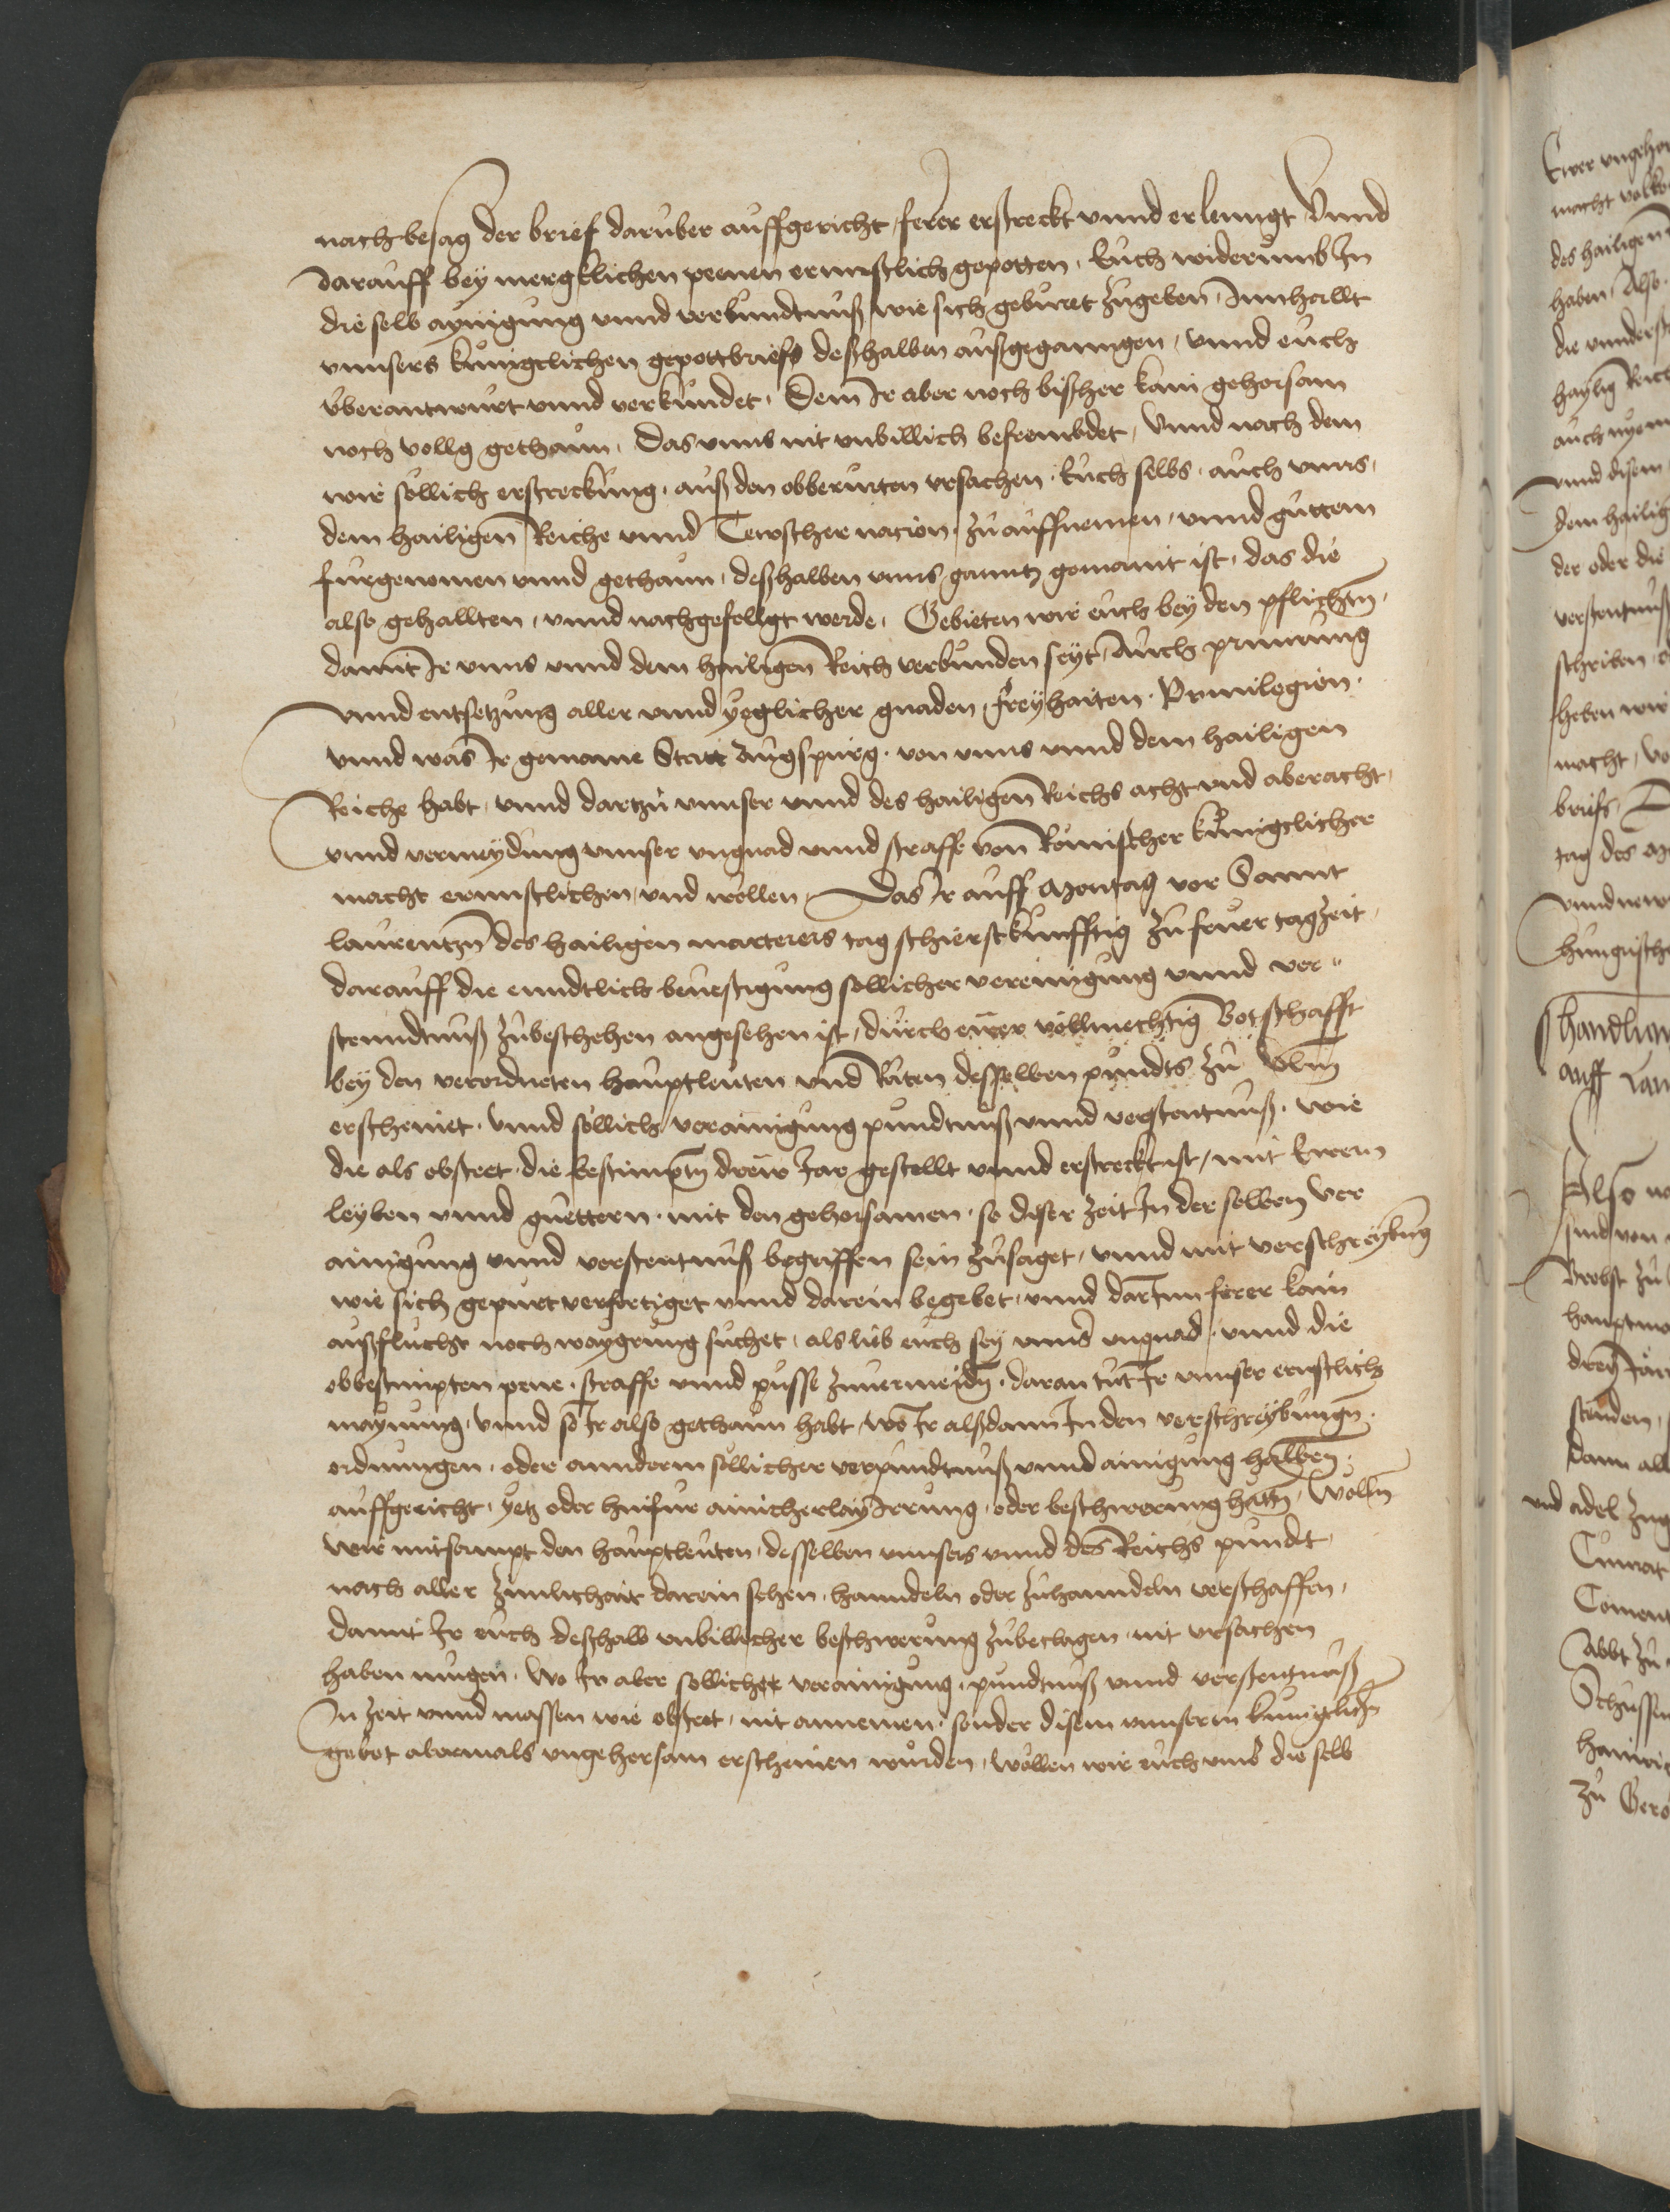 nach besag der brief daruber auffgericht, ferer erstreckt vnnd erlenngt Vnnd
darauff bey mergklichen peenen ernnstlich gepotten, Euch widerumb In
die selb aynigung vnnd verbundtnuß wie sich geburet zugeben Innhallt
vnnsers kunigclichen gepottbriefs deßhalben außgeganngen, vnnd euch
vberantwurt vnnd verkundet, Dem Ir aber noch bißher kain gehorsam
noch vollg gethaun, Das vnns nit vnbillich befrembdet, Vnnd nach dem
wir sollich erstreckung, auß den obberurten vrsachen, Euch selbs, auch vnns,
dem hailigen Reiche vnnd Tewtscher nacion, zu auffnemen, vnnd guttem
furgenomen vnnd gethaun, deßhalben vnns ganntz gemaint ist, das die
also gehallten, vnnd nachgefollgt werde, Gebieten wir euch bey den pflichtn,
damit Ir vnns vnnd dem hailigen Reich verbunden seyt, Auch priuirung
vnnd entsetzung aller vnnd yeglicher gnaden, freyhaiten, Priuilegien,
vnnd was Ir gemaine Statt Augspurg, von vnns vnnd dem hailigen
Reiche habt, vnnd dartzu vnnser vnnd des hailigen Reichs acht vnd aberacht,
vnnd vermeydung vnnser vngnad vnnd straffe von Romischer kunigclicher
macht ernnstlichen vnd wollen, Das Ir auff Montag vor Sannt
laurentzn des hailigen marterers tag schierst kunfftig zu feuer tagzeit,
darauff die enndtlich beuestigung sollicher vereinigung vnnd ver-
stenndtnuß zubeschehen angesehen ist, durch ewer vollmechtig Botschafft
bey den verordneten hauptleuten vnd Räten desselben pundts zu Vlm
erscheinet, Vnnd söllich verainigung pundtnuß vnnd verstentnuß, wie
die als obsteet, die bestimptn drew Jar gestellt vnnd erstreckt ist, mit Ewern
leyben vnnd guettern, mit den gehorsamen, so diser zeit In der selben ver
ainigung vnnd verstentnuß begriffen sein zusaget, vnnd mit verschreybung
wie sich gepurt verfertiget vnnd darein begebet, vnnd darInn ferer kain
außflucht noch waygrung suchet, als lieb euch sey vnns vngnad, vnnd die
obbestimpten pene, straffe vnnd pusse zuuermeidn, daran tut Ir vnnser ernstlich
maynung, Vnnd so Ir also gethaun habt, wo Ir alßdann In den verschreybungn,
ordnungen, oder annderm sollicher verpundtnuß vnnd ainigung halben,
auffgericht, yetz oder hinfur ainicherlay Irrung, oder beschwerung hattn, wolln
wir mitsampt den hauptleuten, desselben vnnsers vnnd des Reichs pundt,
nach aller zimlichait darein sehen, hanndeln oder zuhanndeln verschaffen,
damit Ir euch deßhalb vnbillicher beschwerung zubeclagen nit vrsachen
haben mugen, Wo Ir aber sollicher verainigung, pundtnuß vnnd verstentnuß
In zeit vnnd massen wie obsteet, nit annemen, sonder disem vnnserm kunigclichn
gebot abermals vngehorsam erscheinen wurden, wollen wir euch vmb die selb
Ewer vngehor
des hailigen
haben, Also
haylig Reich
vnnd disem
dem hailig
der oder die
verstentnuß
schriben
heben wir
macht
briefs
tag des
Also
sind von
Brobst zu
hauptm
dann all
vnd adel zug
Abbt zu
Schussen
zu